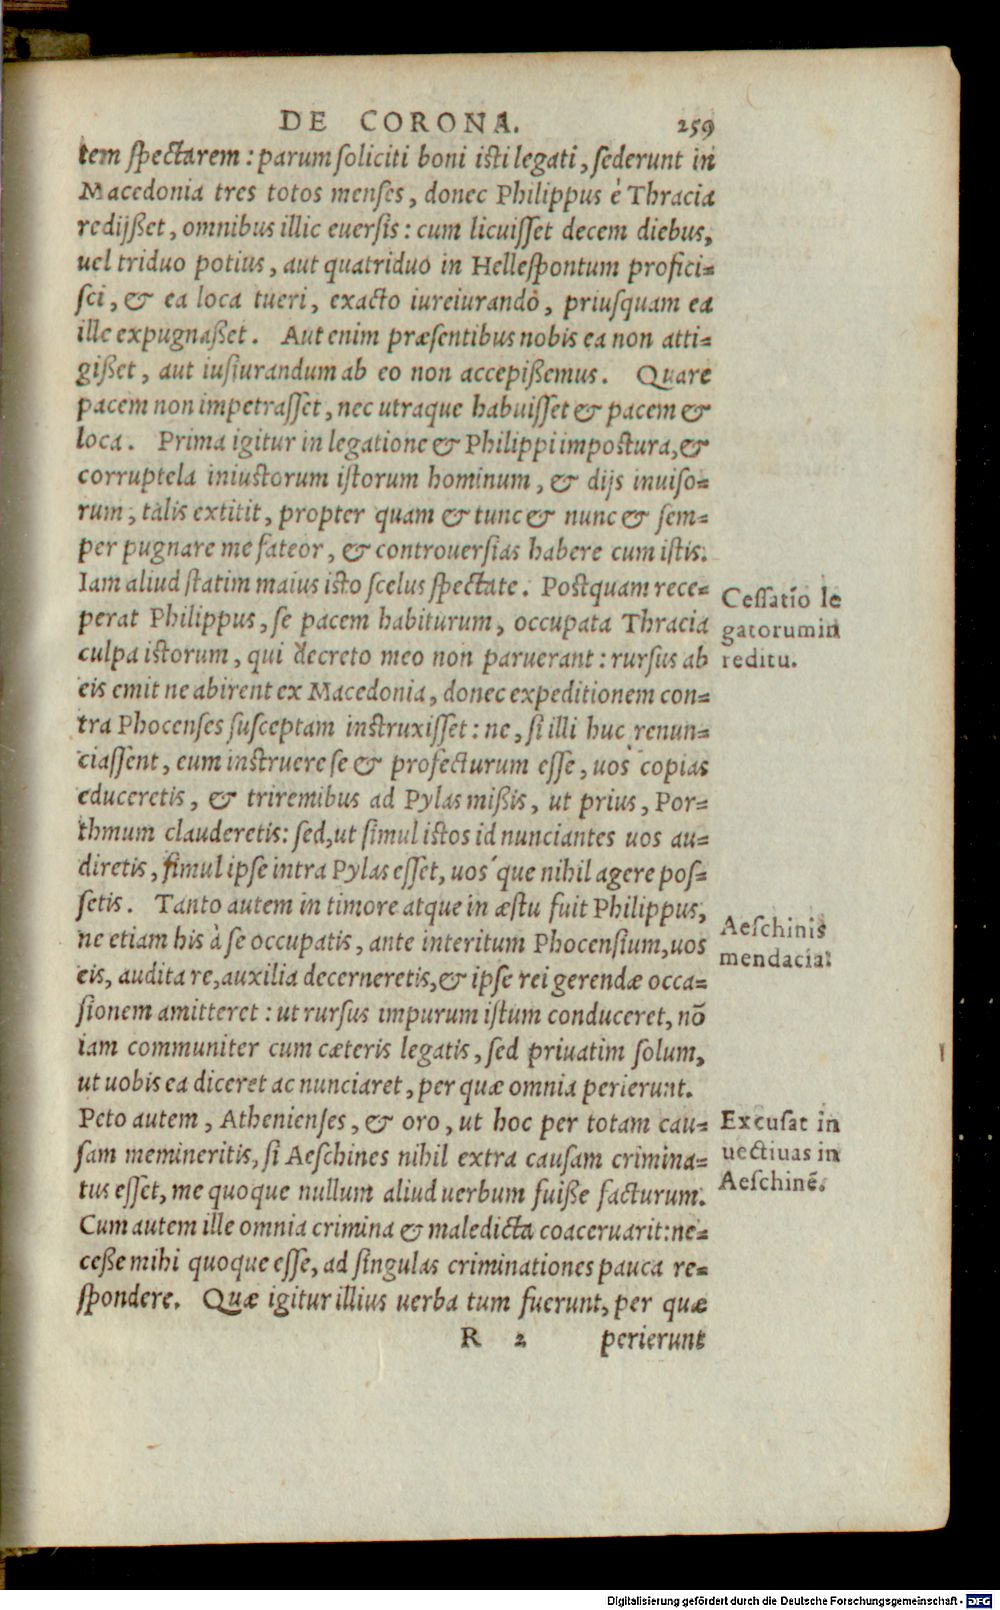 DE CORONA. 259
tem spectarem: parum soliciti boni isti legati, sederunt in
Macedonia tres totos menses, donec Philippus è Thracia
redijßet, omnibus illic euersis: cum licuisset decem diebus,
uel triduo potius, aut quatriduo in Hellespontum profici=
sci, & ea loca tueri, exacto iureiurando, priusquam ea
ille expugnaßet. Aut enim præsentibus nobis ea non atti=
gißet, aut iusiurandum ab eo non accepißemus. Quare
pacem non impetrasset, nec utraque habuisset & pacem &
loca. Prima igitur in legatione & Philippi impostura, &
corruptela iniustorum istorum hominum, & dijs inuiso=
rum, talis extitit, propter quam & tunc & nunc & sem=
per pugnare me fateor, & controuersias habere cum istis.
Iam aliud statim maius isto scelus spectate. Postquam rece=
perat Philippus, se pacem habiturum, occupata Thracia
culpa istorum, qui decreto meo non paruerant: rursus ab
eis emit ne abirent ex Macedonia, donec expeditionem con=
tra Phocenses susceptam instruxisset: ne, si illi huc renun=
ciassent, eum instruere se & profecturum esse, uos copias
educeretis, & triremibus ad Pylas mißis, ut prius, Por=
thmum clauderetis: sed, ut simul istos id nunciantes uos au=
diretis, simul ipse intra Pylas esset, uos´que nihil agere pos=
setis. Tanto autem in timore atque in æstu fuit Philippus,
ne etiam his à se occupatis, ante interitum Phocensium, uos
eis, audita re, auxilia decerneretis, & ipse rei gerendæ occa=
sionem amitteret: ut rursus impurum istum conduceret, nō
iam communiter cum cæteris legatis, sed priuatim solum,
ut uobis ea diceret ac nunciaret, per quæ omnia perierunt.
Peto autem, Athenienses, & oro, ut hoc per totam cau=
sam memineritis, si Aeschines nihil extra causam crimina=
tus esset, me quoque nullum aliud uerbum fuiße facturum.
Cum autem ille omnia crimina & maledicta coaceruarit: ne=
ceße mihi quoque esse, ad singulas criminationes pauca re=
spondere. Quæ igitur illius uerba tum fuerunt, per quæ
R 2 perierunt
Cessatio le
gatorum in
reditu.
Aeschinis
mendacia.
Excusat in
uectiuas in
Aeschinē.
Digitalisierung gefördert durch die Deutsche Forschungsgemeinschaft - DFG